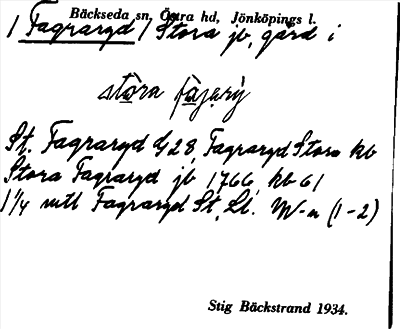 Bäckseda sn, Östra hd, Jönköpings l.
/ Fagraryd / Stora jb, gård i
stora fajerỳ
St. Fagraryd G 28, Fagraryd Stora kb
Stora Fagraryd jb 1766, kb 61
1 1/4 mtl Fagraryd St, Ll. M-n (1-2)
Stig Bäckstrand 1934.